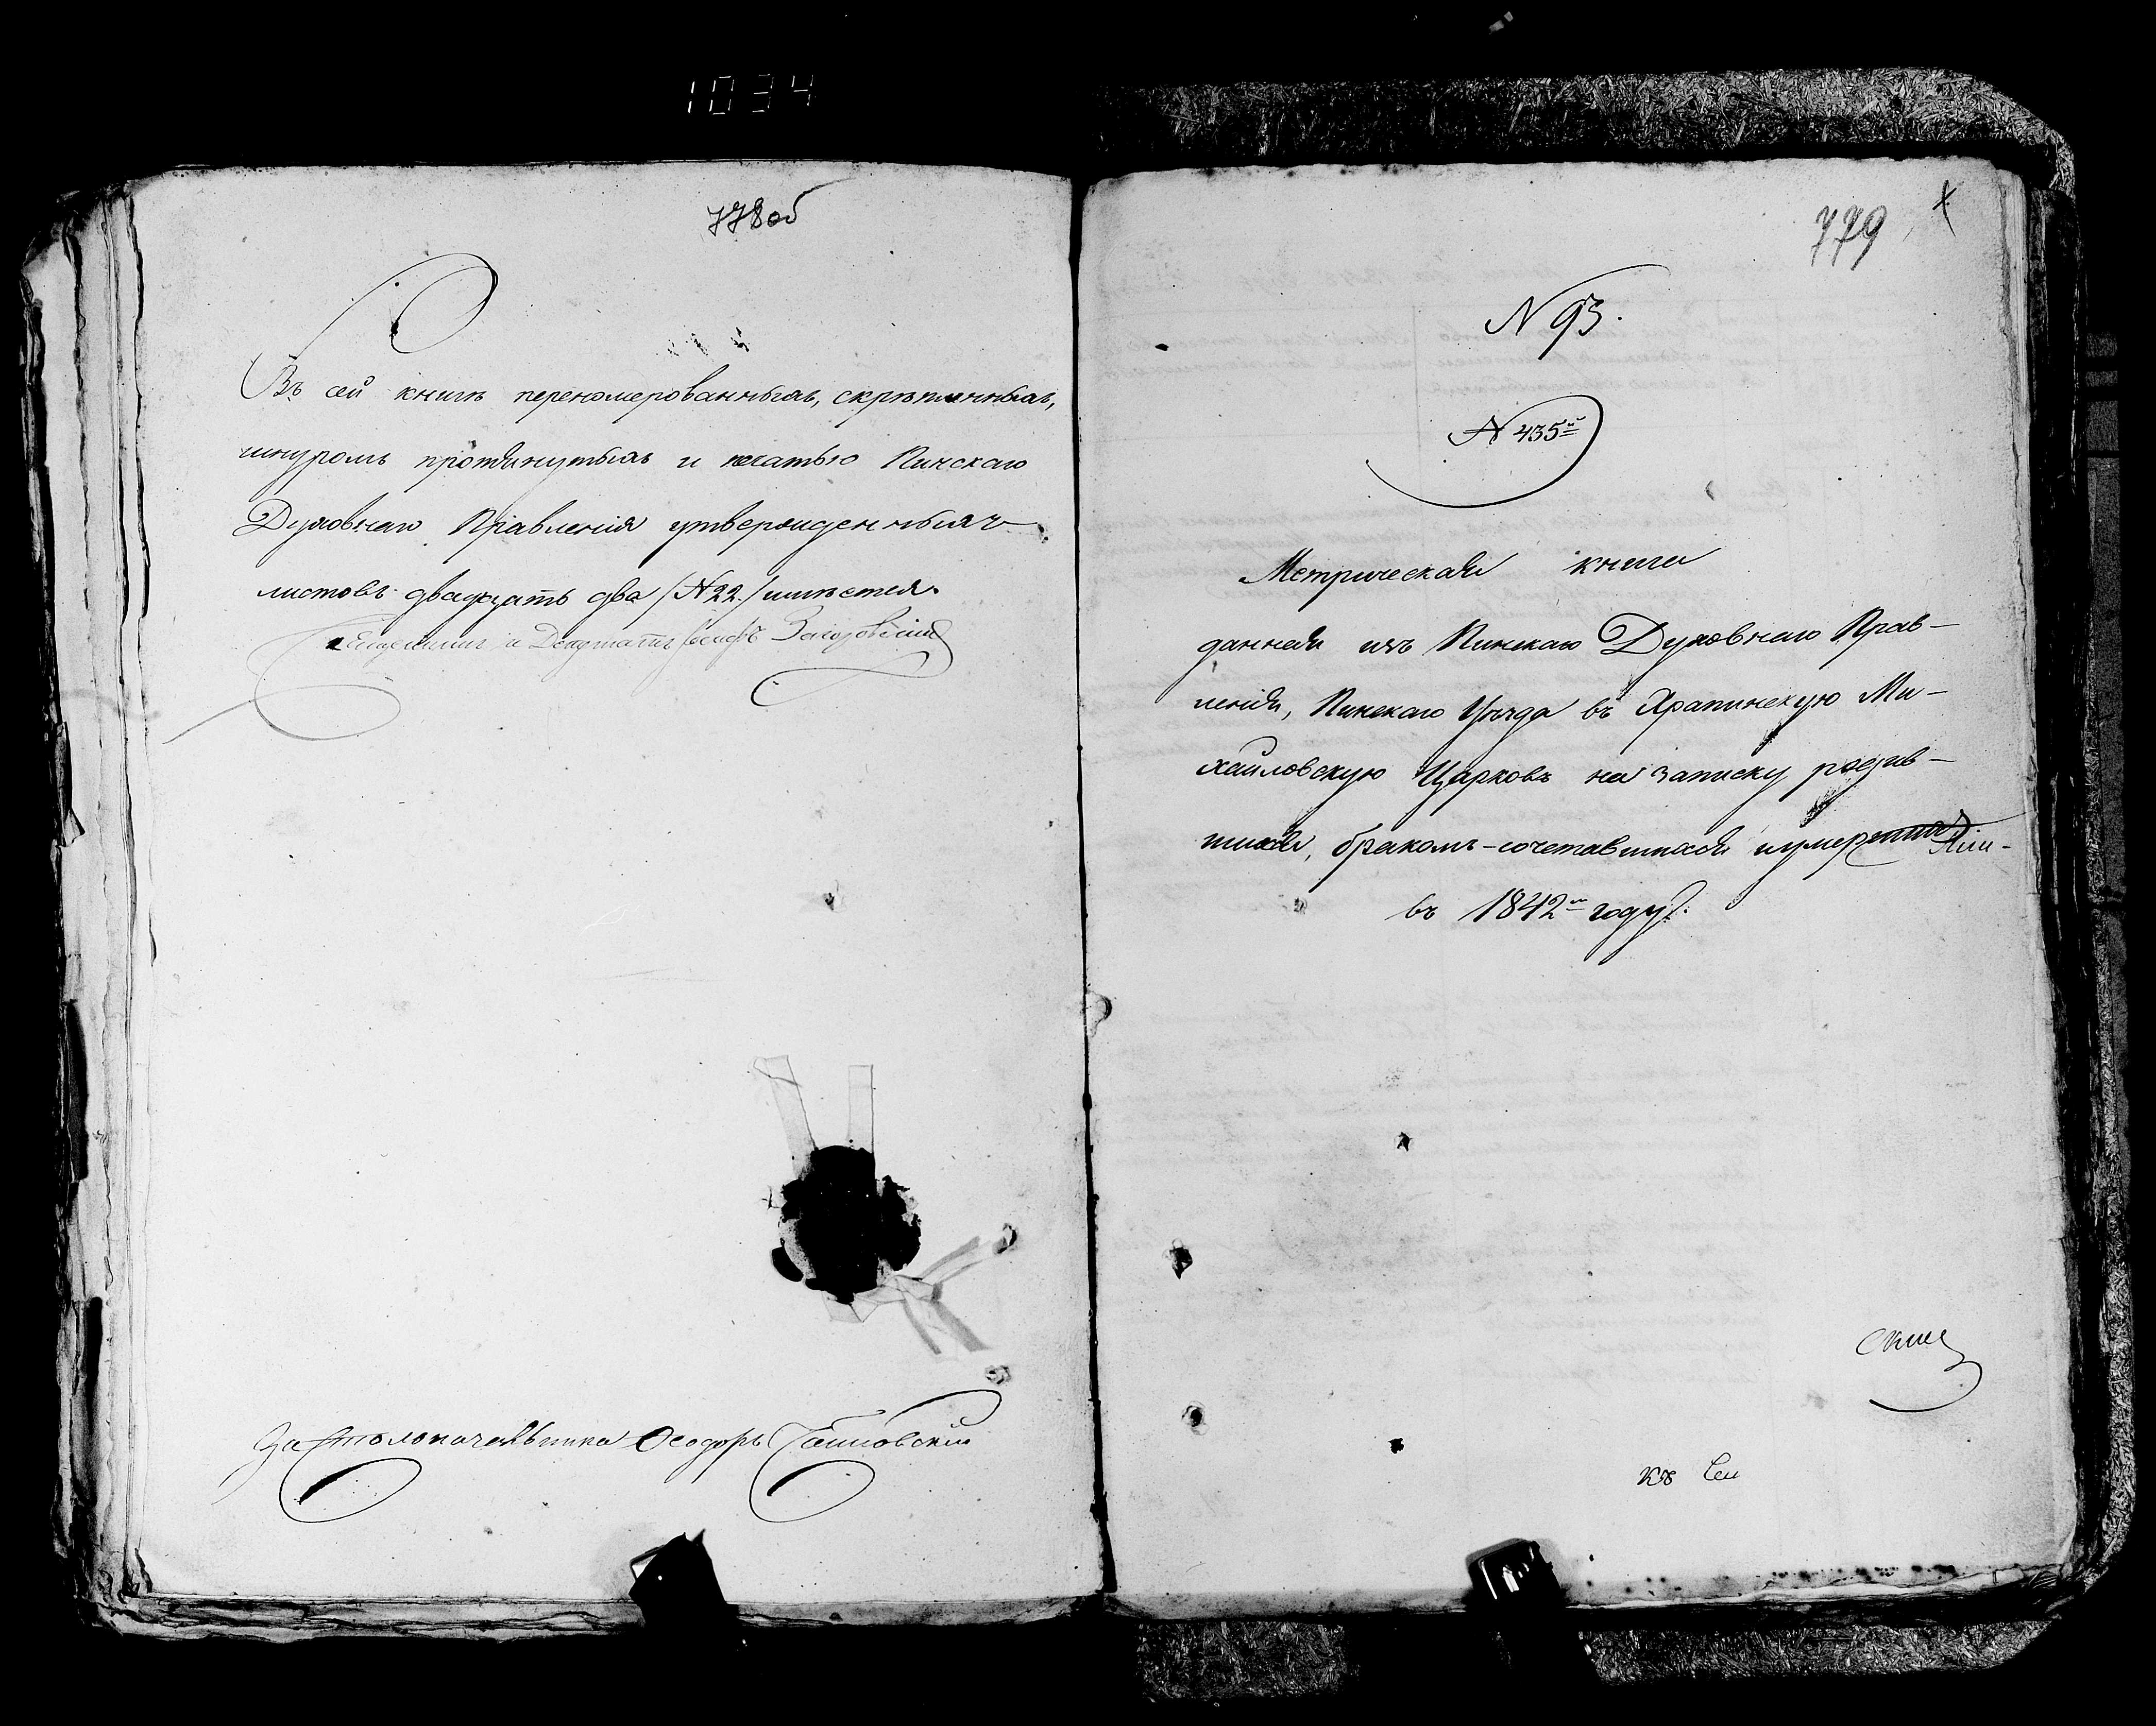 1034
778 об
Въ сей книгѣ переномерованныхъ, скрѣпленныхъ,
шнуромъ протянутыхъ и печатью Пинскаго
Духовнаго Правленія утвержденныхъ
листовъ двадцать два /№ 22./ имѣется.
и Депутатъ Іосифъ
За Столоначальника Ѳеодоръ
779
N 93.
№ 435й
Метрическая книга
данная изъ Пинскаго Духовнаго Прав-
ленія, Пинскаго Уѣзда въ Храпинскую Ми-
хайловскую Церковь на записку родив-
шихся, бракомъ-сочетавшихся и умер
въ 1842м году.
къ Сей